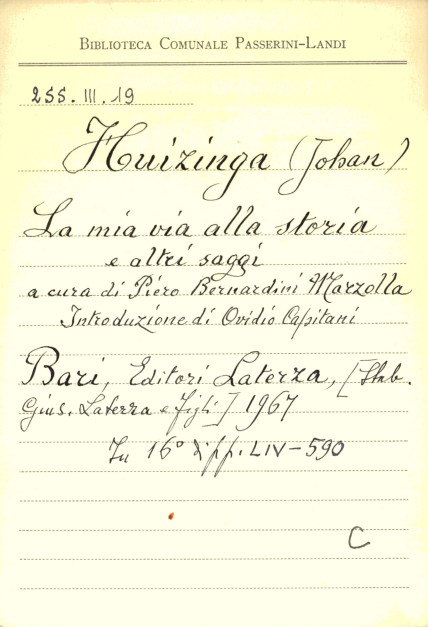 BIBLIOTECA COMUNALE PASSERINI-LANDI
255.III.19
Huizinga (Johan)
La mia via alla storia
e altri saggi
a cura di Piero Bernardini Marzolla
Introduzione di Ovidio Capitani
Bari, Editori Laterza, [Stab.
Gius. Laterza e figli] 1967
In 16° di pp. LIV-590
C